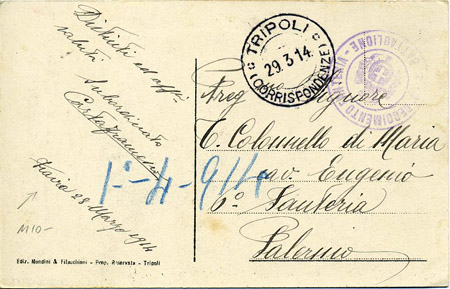 Distinti ed aff.
saluti
Subordinato
Zavia 28 Marzo 1914
1°-4-914
TRIPOLI
29.3.14
(CORRISPONDENZE)
BATTAGLIONE
Preg Signore
T. Colonnello di Maria
cav Eugenio
6° Fanteria
Palermo
M10-
Ediz. Mondini & Filacchioni - Prop. Riservata - Tripoli